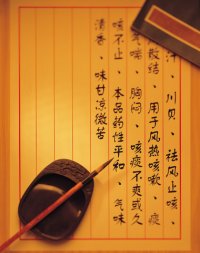 汁、川贝、祛风止咳、
散结、用于风热咳嗽、痰
喘、胸闷、咳痰不爽或久
咳不止、本品药性平和、气味
清香、味甘凉微苦